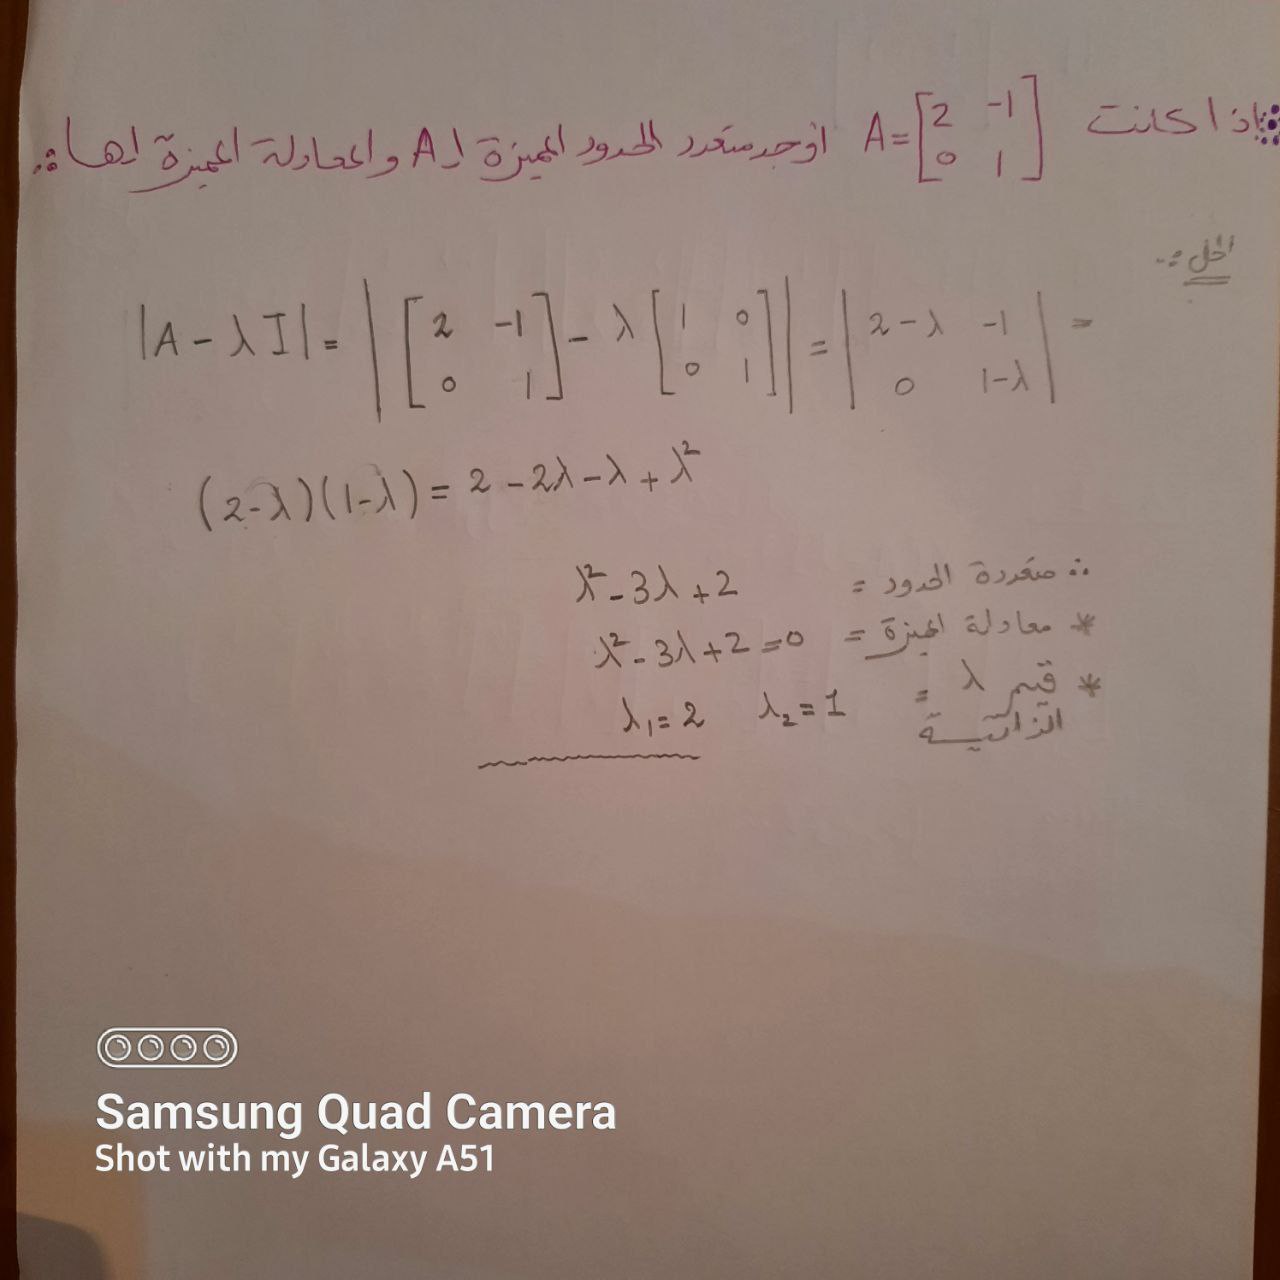 إذا كانت A = [2 -1
0 1] أوجد متعدد الحدود المميزة لـ A والمعادلة المميزة لها :.
الحل :-
|A - λI| = | [2 -1
0 1] - λ [1 0
0 1] | = | 2-λ -1
0 1-λ | =
(2-λ)(1-λ) = 2 - 2λ - λ + λ²
∴ متعددة الحدود = λ² - 3λ + 2
* معادلة المميزة = λ² - 3λ + 2 = 0
* قيم λ الذاتية = λ₁ = 2 λ₂ = 1
Samsung Quad Camera
Shot with my Galaxy A51